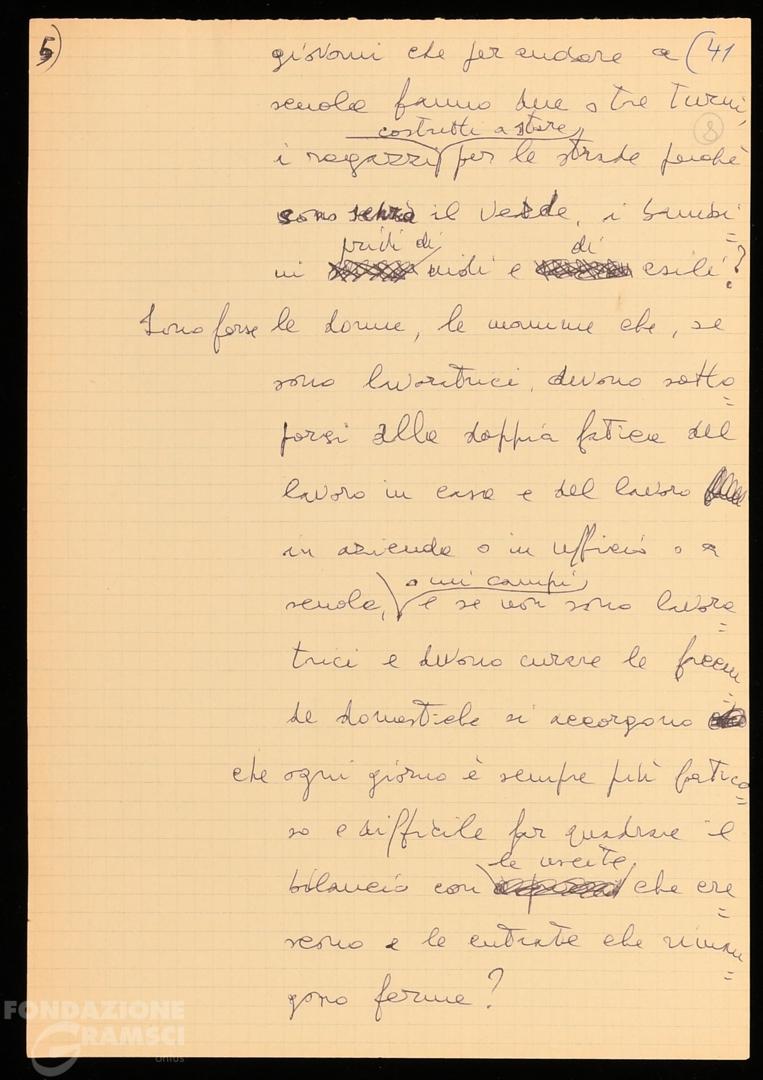 5)
giovani che per andare a (41
scuola fanno due o tre turni,
8
costretti a stare
i ragazzi per le strade perché
sono senza il verde, i bambi=
privi di di
ni nidi e asili?
Sono forse le donne, le mamme che, se
sono lavoratrici, devono sotto=
porsi alla doppia fatica del
lavoro in casa e del lavoro
in azienda o in ufficio o a
o nei campi
scuola, e se non sono lavora=
trici e devono curare le faccen=
de domestiche si accorgono
che ogni giorno è sempre più fatico=
so e difficile far quadrare il
le uscite
bilancio con che cre=
scono e le entrate che riman=
gono ferme?
FONDAZIONE
GRAMSCI
onlus